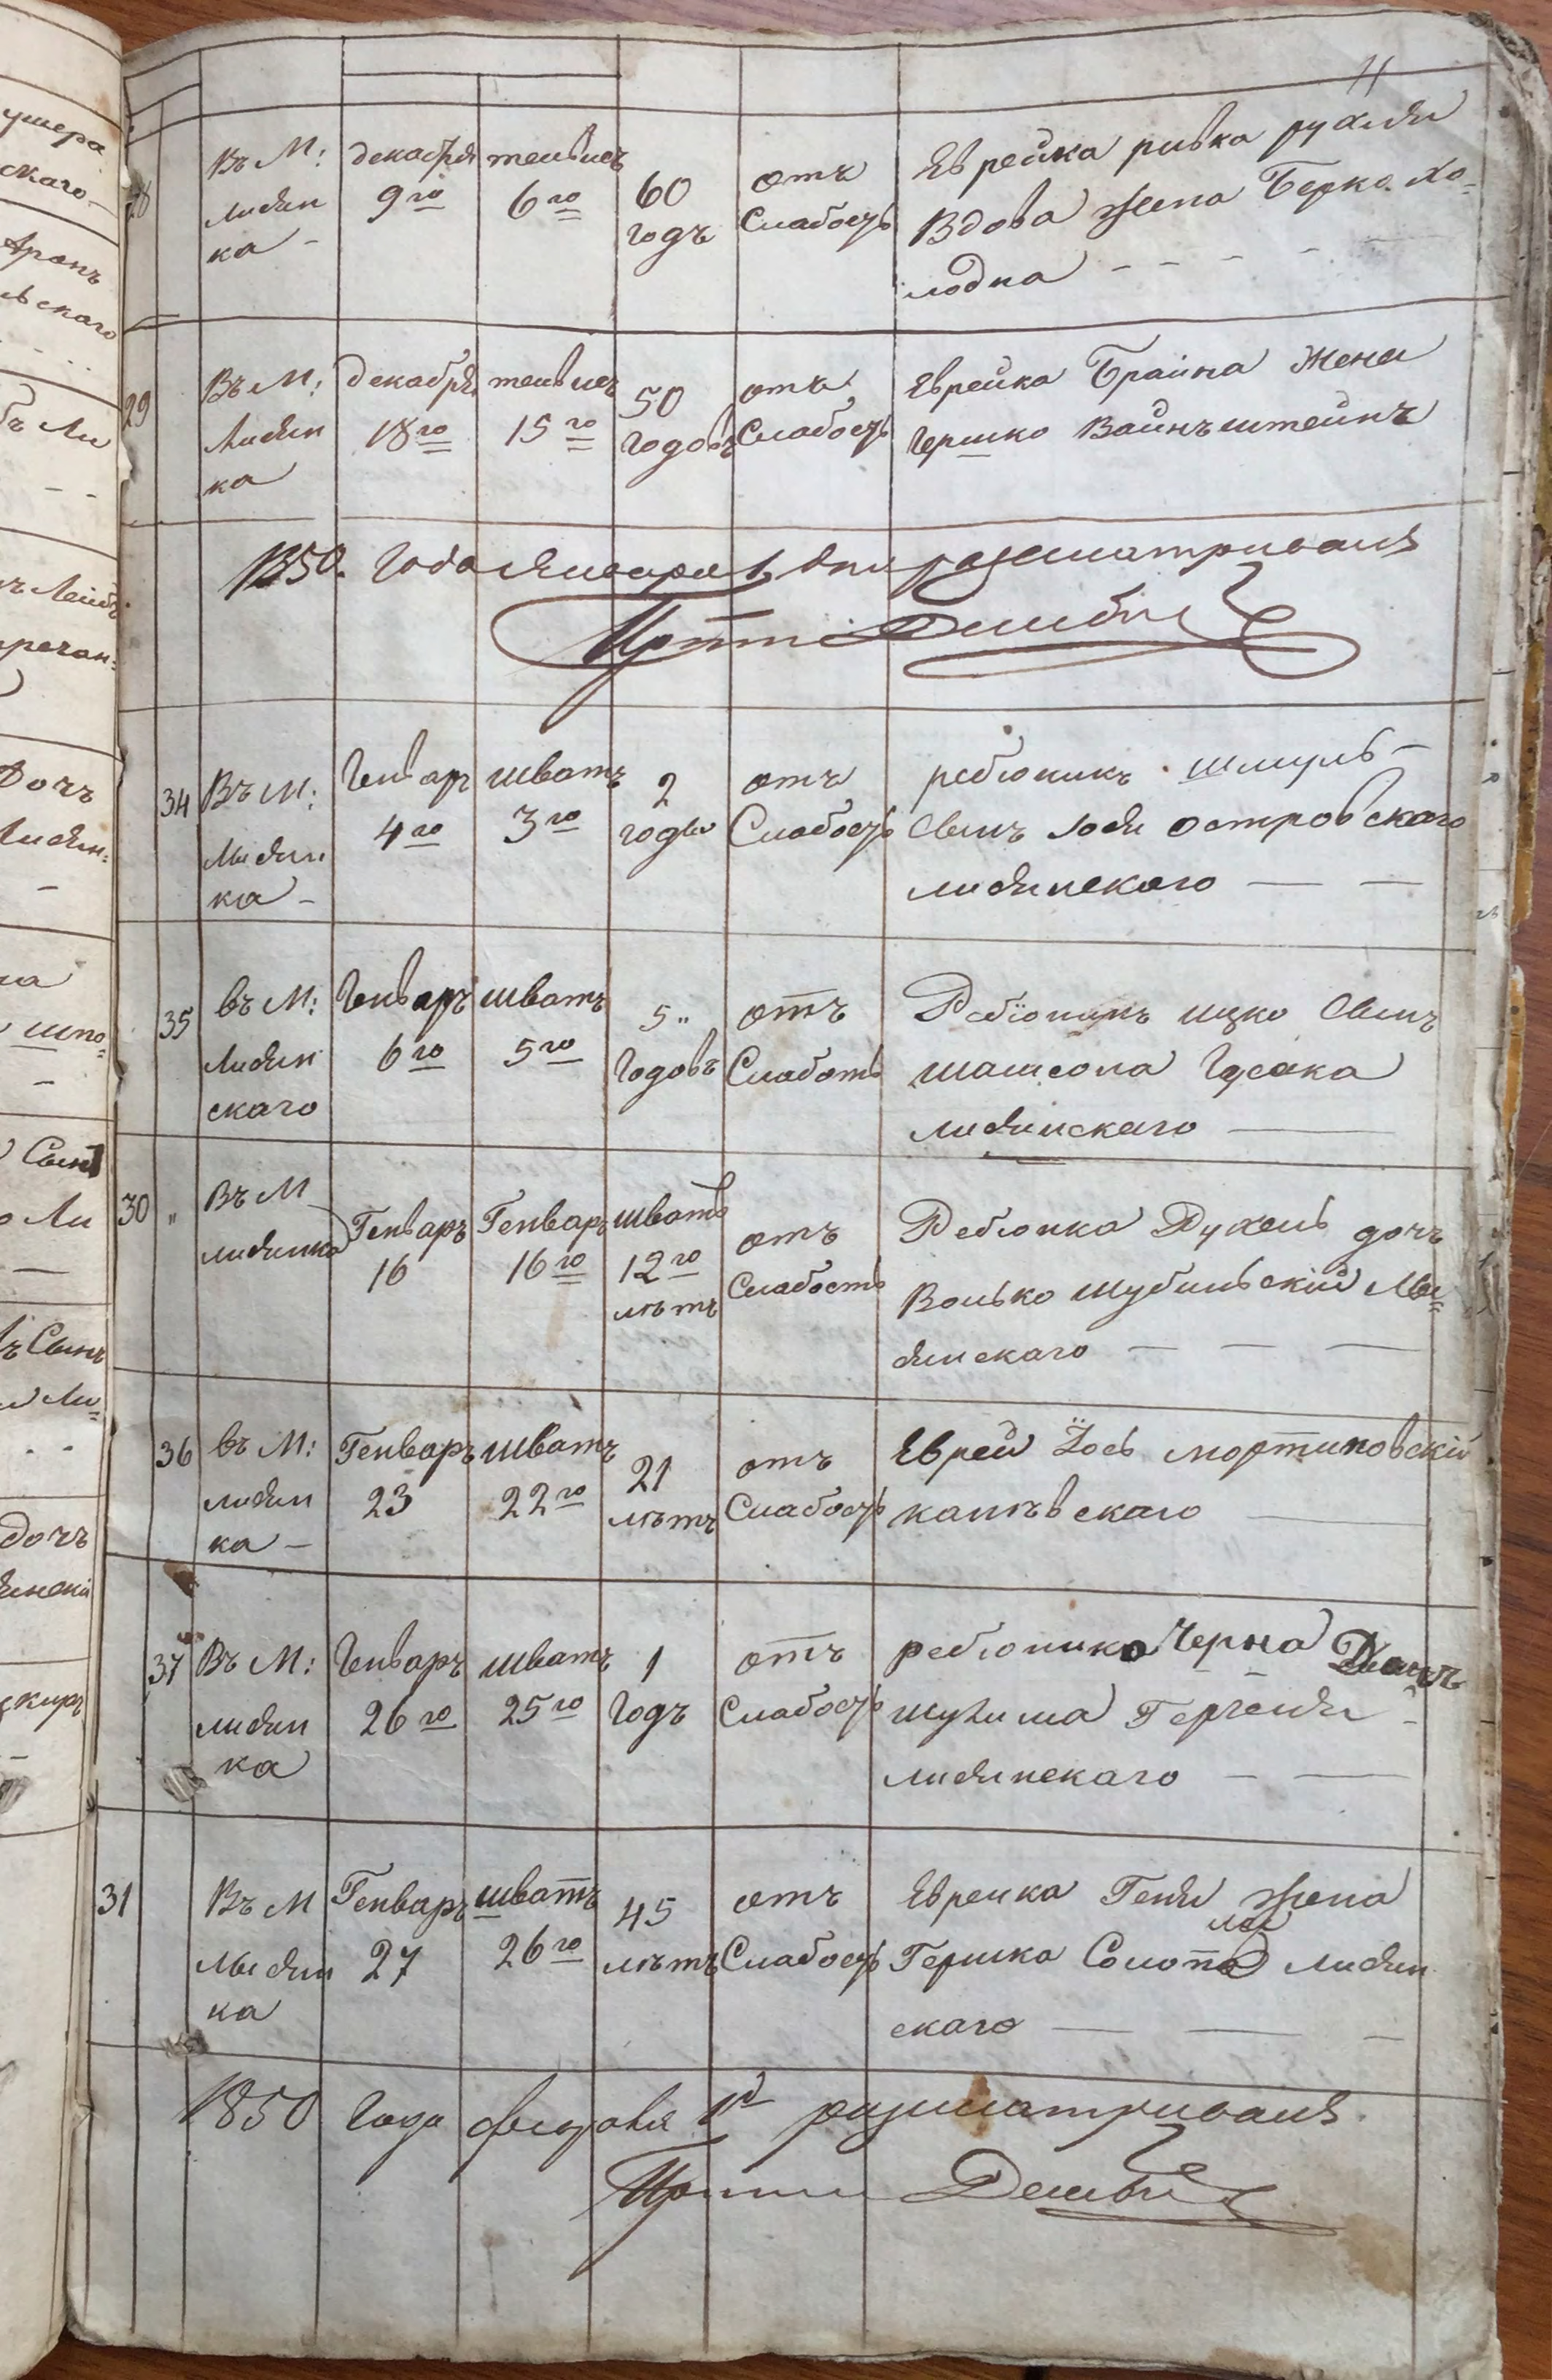 11
28
Въ М:
Лисян
ка -
декабря
9го
тейвис
6го
60
годъ
отъ
Слабость
Еврейка ривка рухля
Вдова жена Берко Хо-
лодна - - - -
29
Въ М:
Лисян
ка
декабря
18го
тейвис
15го
50
годовъ
отъ
Слабость
Еврейка Брайна Жена
Гершко Вайнъштейнъ
1850. Года Января 1 дня разсматривалъ
34
Въ М:
Лисян
ка -
Генварь
4го
шватъ
3го
2
годы
отъ
Слабость
ребюникъ шмуль -
Сынъ Іося островскаго
лисянскаго — —
35
въ М:
Лисян
скаго
Генварь
6го
шватъ
5го
5"
Годовъ
отъ
Слабость
Ребіоникъ ицко Сынъ
шамсона Гусака
лисянскаго —
30 "
Въ М
лисянка
Генварь
16
Генварь
16го
шватъ
12го
лѣтъ
отъ
Слабость
Ребюнка Рухель дочь
Волько Шубинскій Лы=
сянскаго — — —
36
въ М:
лисян
ка -
Генварь
23
шватъ
22го
21
лѣтъ
отъ
Слабость
Еврей Іось мортиновскій
канѣвскаго —
37
Въ М:
лисян
ка
Генварь
26го
шватъ
25го
1
Годъ
отъ
Слабость
ребюнико Черна Дочь
шулима -
лисянскаго — —
31
Въ М
Лысян
ка
Генварь
27
шватъ
26го
45
лѣтъ
отъ
Слабость
Еврейка Геня жена
Гершка лисян
скаго — — -
1850 Года февраля 1д разсматривалъ